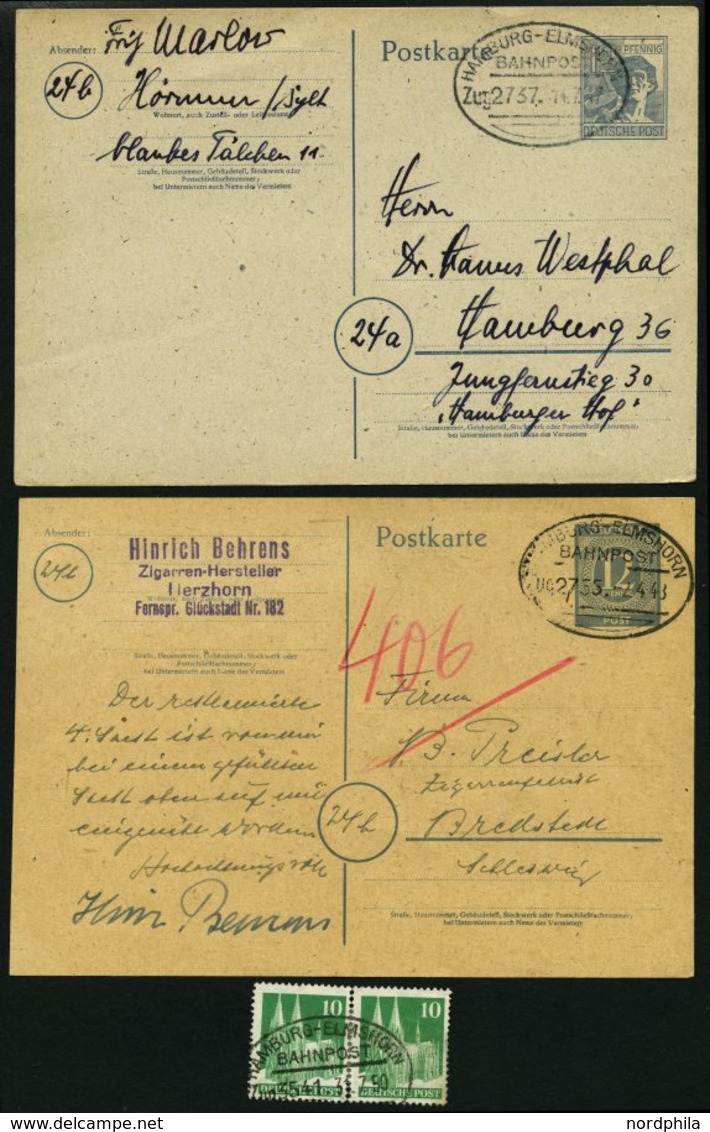 Absender: Fritz Marlow
24b
Hörnum / Sylt
Wohnort, auch Zustell- oder Leitpostamt
blankes Tälchen 11
Straße, Hausnummer, Gebäudeteil, Stockwerk oder
Postschließfachnummer;
bei Untermietern auch Name des Vermieters
Postkarte
PFENNIG
DEUTSCHE POST
HAMBURG-ELMSHORN
BAHNPOST
Zug 2737
Herrn
Dr. Hanns Westphal
24a
Hamburg 36
Jungfernstieg 30
"Hamburger Hof"
Straße, Hausnummer, Gebäudeteil, Stockwerk oder Postschließfachnummer;
bei Untermietern auch Name des Vermieters
Absender:
24b
Hinrich Behrens
Zigarren-Hersteller
Herzhorn
Fernspr. Glückstadt Nr. 182
Straße, Hausnummer, Gebäudeteil, Stockwerk oder
Postschließfachnummer;
bei Untermietern auch Name des Vermieters
Der reklamierte
4. Sack ist von mir
bei einem gefüllten
Sack oben auf mit
eingenäht worden.
Hochachtungsvoll
Hinr Behrens
Postkarte
12
POST
HAMBURG-ELMSHORN
BAHNPOST
406
Firma
24b
Bredstedt
Schleswig
Straße, Hausnummer, Gebäudeteil, Stockwerk oder Postschließfachnummer;
bei Untermietern auch Name des Vermieters
10 10
HAMBURG-ELMSHORN
BAHNPOST
DEUTSCHE POST DEUTSCHE POST
nordphila